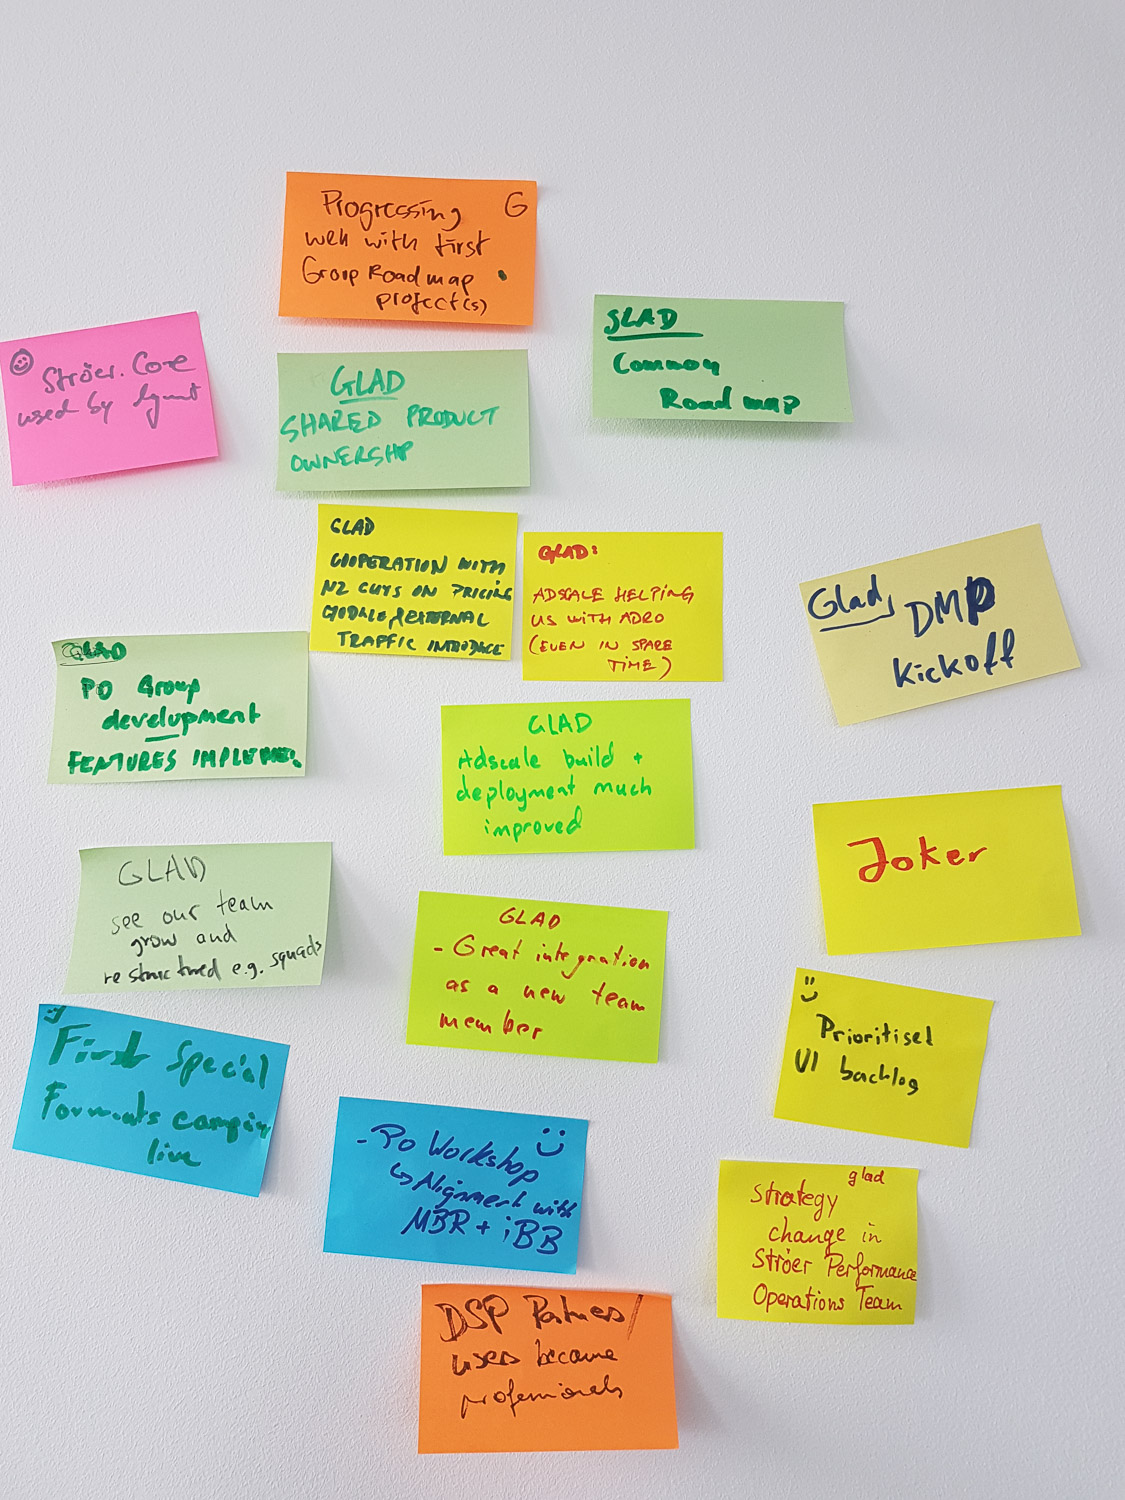 Progressing G
well with first
Group Roadmap
project(s)
GLAD
Common
Road map
Ströer.Core
used by
GLAD
SHARED PRODUCT
OWNERSHIP
GLAD
COOPERATION WITH
NZ GUYS ON PRICING
EXTERNAL
TRAFFIC INTRODUCE
GLAD:
ADSCALE HELPING
US WITH ADRO
(EVEN IN SPARE
TIME)
Glad,
DMP
Kickoff
GLAD
PO Group
development
FEATURES IMPLEMEN.
GLAD
Adscale build +
deployment much
improved
Joker
GLAD
see our team
grow and
restructured e.g. squads
GLAD
- Great integration
as a new team
member
Prioritised
UI backlog
First Special
Formats campaign
live
- PO Workshop
↳ Alignment with
MBR + iBB
glad
Strategy
change in
Ströer Performance
Operations Team
DSP Partners/
users became
professionals